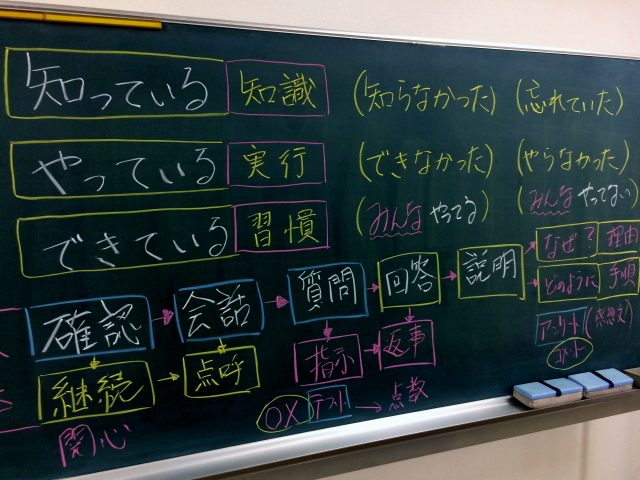 知っている 知識 (知らなかった) (忘れていた)
やっている 実行 (できなかった) (やらなかった)
できている 習慣 (みんなやってる) (みんなやってない)
確認 → 会話 → 質問 → 回答 → 説明 → なぜ? 理由
どのように 手順
継続 → 点呼 指示 → 返事 アンケート (感想文)
関心 OX テスト → 点数 コメント